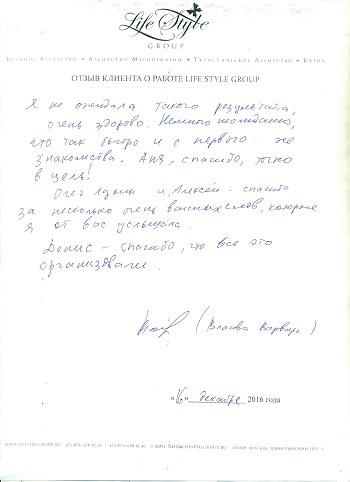 Life Style
GROUP
Брачное Агентство • Агентство Мероприятий • Туристическое Агентство • Бутик
ОТЗЫВ КЛИЕНТА О РАБОТЕ LIFE STYLE GROUP
Я не ожидала такого результата,
очень здорово. Немного неожиданно,
что так быстро и с первого же
знакомства. Аня, спасибо, точно
в цель!
Олег и Алексей - спасибо
за несколько очень важных слов, которые
я от вас услышала.
Денис - спасибо, что все это
организовали.
(Власова )
«16» декабря 2016 года